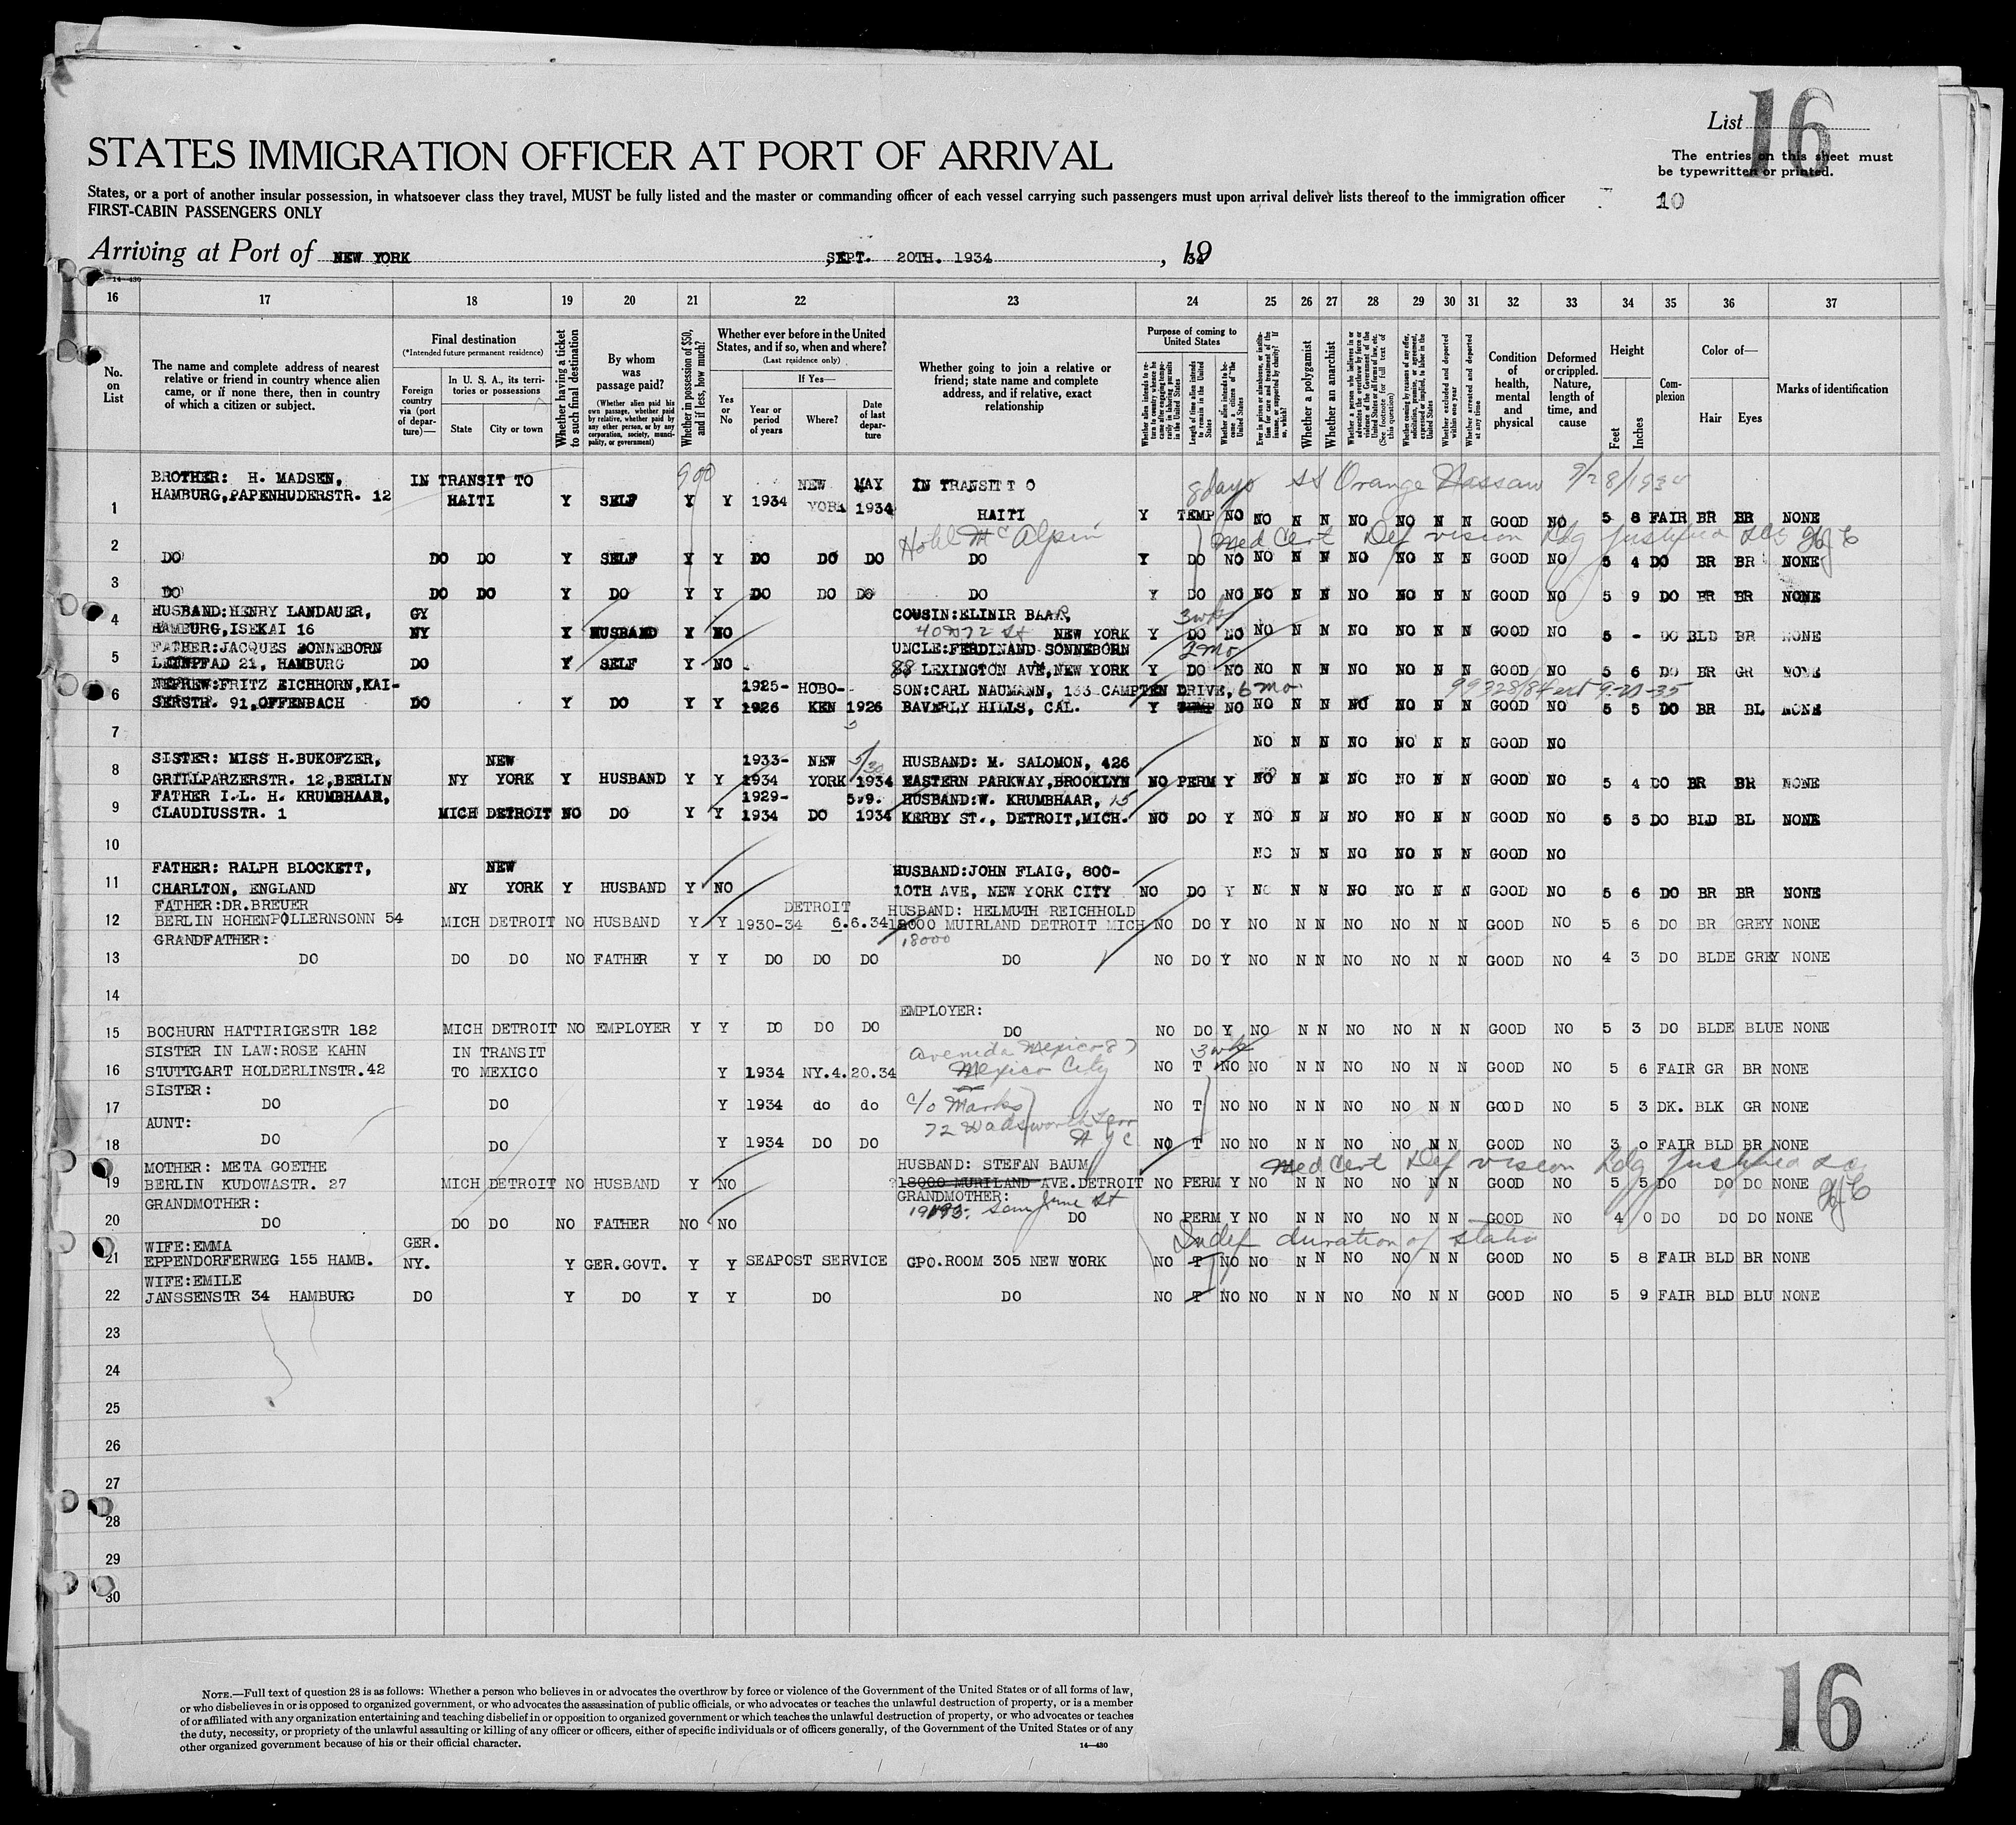 List 16
STATES IMMIGRATION OFFICER AT PORT OF ARRIVAL
The entries on this sheet must
be typewritten or printed.
States, or a port of another insular possession, in whatsoever class they travel, MUST be fully listed and the master or commanding officer of each vessel carrying such passengers must upon arrival deliver lists thereof to the immigration officer
10
FIRST-CABIN PASSENGERS ONLY
Arriving at Port of NEW YORK SEPT. 20TH. 1934, 19
14-430
16 17 18 19 20 21 22 23 24 25 26 27 28 29 30 31 32 33 34 35 36 37
No. on List
The name and complete address of nearest relative or friend in country whence alien came, or if none there, then in country of which a citizen or subject.
Final destination
(*Intended future permanent residence)
Foreign country via (port of departure)—
In U. S. A., its territories or possessions
State
City or town
Whether having a ticket to such final destination
By whom was passage paid?
(Whether alien paid his own passage, whether paid by any other person, or by any corporation, society, municipality, or government)
Whether in possession of $50, and if less, how much?
Whether ever before in the United States, and if so, when and where?
(Last residence only)
Yes or No
If Yes—
Year or period of years
Where?
Date of last departure
Whether going to join a relative or friend; state name and complete address, and if relative, exact relationship
Purpose of coming to United States
Whether alien intends to return to country whence he came after engaging temporarily in laboring pursuits in the United States
Length of time alien intends to remain in the United States
Whether alien intends to become a citizen of the United States
Ever in prison or almshouse, or institution for care and treatment of the insane, or supported by charity? If so, which?
Whether a polygamist
Whether an anarchist
Whether a person who believes in or advocates the overthrow by force or violence of the Government of the United States or all forms of law, etc. (See footnote for full text of this question)
Whether coming by reasons of any offer, solicitation, promise, or agreement, expressed or implied, to labor in the United States
Whether excluded and deported within one year
Whether arrested and deported at any time
Condition of health, mental and physical
Deformed or crippled. Nature, length of time, and cause
Height
Feet
Inches
Complexion
Color of—
Hair
Eyes
Marks of identification
BROTHER: H. MADSEN, IN TRANSIT TO 900 NEW MAY IN TRANSIT T O 8 days SS Orange Nassau 9/28/1934
HAMBURG, PAPENHUDERSTR. 12
1 HAITI Y SELF Y Y 1934 YORK 1934 HAITI Y TEMP NO NO N N NO NO N N GOOD NO 5 8 FAIR BR BR NONE
Hotel McAlpin Med Cert Def vision
2 DO DO DO Y SELF Y Y DO DO DO DO Y DO NO NO N N NO NO N N GOOD NO 5 4 DO BR BR NONE
3 DO DO DO Y DO Y Y DO DO DO DO Y DO NO NO N N NO NO N N GOOD NO 5 9 DO BR BR NONE
HUSBAND: HENRY LANDAUER, GY COUSIN: ELINIR BAAR, 3 wks
4 HAMBURG, ISEKAI 16 NY Y HUSBAND Y NO 40 W 72 St NEW YORK Y DO NO NO N N NO NO N N GOOD NO 5 - DO BLD BR NONE
FATHER: JACQUES SONNEBORN UNCLE: FERDINAND SONNEBORN 2 Mo
5 LEINPFAD 21, HAMBURG DO Y SELF Y NO 88 LEXINGTON AVE, NEW YORK Y DO NO NO N N NO NO N N GOOD NO 5 6 DO BR GR NONE
NEFREW: FRITZ EICHHORN, KAI- 1925- HOBO- SON: CARL NAUMANN, 133 CAMPTEN DRIVE, 6 mo
6 SERSTR. 91, OFFENBACH DO Y DO Y Y 1926 KEN 1926 BAVERLY HILLS, CAL. Y TEMP NO NO N N NO NO N N GOOD NO 5 5 DO BR BL NONE
7 NO N N NO NO N N GOOD NO
SISTER: MISS H. BUKOFZER, NEW 1933- NEW 5/30 HUSBAND: M. SALOMON, 426
8 GRILLPARZERSTR. 12, BERLIN NY YORK Y HUSBAND Y Y 1934 YORK 1934 EASTERN PARKWAY, BROOKLYN NO PERM Y NO N N NO NO N N GOOD NO 5 4 DO BR BR NONE
FATHER I.L. H. KRUMBHAAR, 1929- 5.9. HUSBAND: W. KRUMBHAAR, 15
9 CLAUDIUSSTR. 1 MICH DETROIT NO DO Y Y 1934 DO 1934 KERBY ST., DETROIT, MICH. NO DO Y NO N N NO NO N N GOOD NO 5 5 DO BLD BL NONE
10 NO N N NO NO N N GOOD NO
FATHER: RALPH BLOCKETT, NEW HUSBAND: JOHN FLAIG, 800-
11 CHARLTON, ENGLAND NY YORK Y HUSBAND Y NO 10TH AVE, NEW YORK CITY NO DO Y NO N N NO NO N N GOOD NO 5 6 DO BR BR NONE
FATHER: DR. BREUER DETROIT HUSBAND: HELMUTH REICHHOLD
12 BERLIN HOHENPOLLERNSONN 54 MICH DETROIT NO HUSBAND Y Y 1930-34 6.6.34 18000 MUIRLAND DETROIT MICH NO DO Y NO N N NO NO N N GOOD NO 5 6 DO BR GREY NONE
GRANDFATHER: 18000
13 DO DO DO NO FATHER Y Y DO DO DO DO NO DO Y NO N N NO NO N N GOOD NO 4 3 DO BLDE GREY NONE
14
EMPLOYER:
15 BOCHURN HATTIRIGESTR 182 MICH DETROIT NO EMPLOYER Y Y DO DO DO DO NO DO Y NO N N NO NO N N GOOD NO 5 3 DO BLDE BLUE NONE
SISTER IN LAW: ROSE KAHN IN TRANSIT Avenida Mexico 87 3 wks
16 STUTTGART HOLDERLINSTR. 42 TO MEXICO Y 1934 NY.4.20.34 Mexico City NO T NO NO N N NO NO N N GOOD NO 5 6 FAIR GR BR NONE
SISTER:
17 DO DO Y 1934 do do c/o Marks NO T NO NO N N NO NO N N GOOD NO 5 3 DK. BLK GR NONE
AUNT: 72 Wadsworth Terr
18 DO DO Y 1934 DO DO N Y C NO T NO NO N N NO NO N N GOOD NO 3 0 FAIR BLD BR NONE
MOTHER: META GOETHE HUSBAND: STEFAN BAUM Med Cert Def vision
19 BERLIN KUDOWASTR. 27 MICH DETROIT NO HUSBAND Y NO 18000 MURILAND AVE. DETROIT NO PERM Y NO N N NO NO N N GOOD NO 5 5 DO DO DO NONE
GRANDMOTHER: GRANDMOTHER:
20 DO DO DO NO FATHER NO NO DO NO PERM Y NO N N NO NO N N GOOD NO 4 0 DO DO DO NONE
WIFE: EMMA GER. Indef duration of status
21 EPPENDORFERWEG 155 HAMB. NY. Y GER.GOVT. Y Y SEAPOST SERVICE GPO.ROOM 305 NEW YORK NO T NO NO N N NO NO N N GOOD NO 5 8 FAIR BLD BR NONE
WIFE: EMILE
22 JANSSENSTR 34 HAMBURG DO Y DO Y Y DO DO NO T NO NO N N NO NO N N GOOD NO 5 9 FAIR BLD BLU NONE
23
24
25
26
27
28
29
30
NOTE.—Full text of question 28 is as follows: Whether a person who believes in or advocates the overthrow by force or violence of the Government of the United States or of all forms of law,
or who disbelieves in or is opposed to organized government, or who advocates the assassination of public officials, or who advocates or teaches the unlawful destruction of property, or is a member
of or affiliated with any organization entertaining and teaching disbelief in or opposition to organized government or which teaches the unlawful destruction of property, or who advocates or teaches
the duty, necessity, or propriety of the unlawful assaulting or killing of any officer or officers, either of specific individuals or of officers generally, of the Government of the United States or of any
other organized government because of his or their official character.
14—430
16